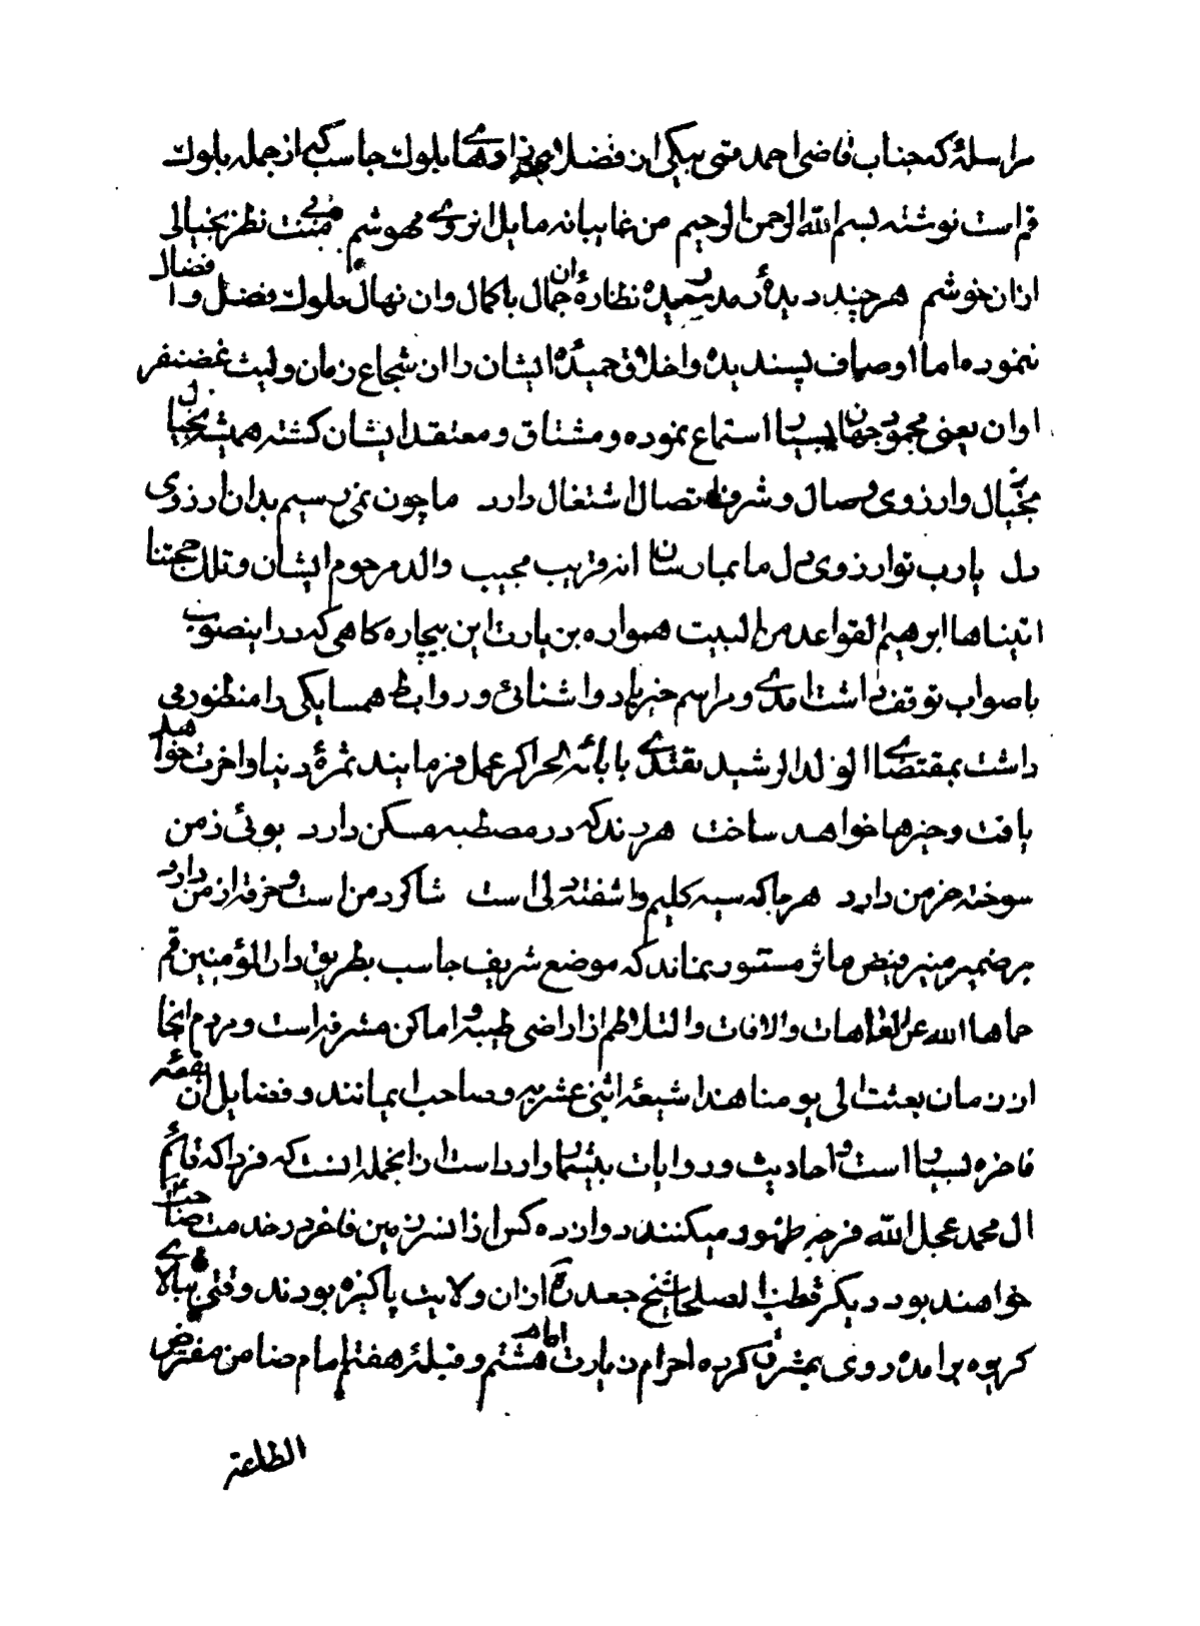 مراسلهٔ که جناب قاضی احمد قمی بیکی از فضلا بلوک جاسب که از جمله بلوک
قم است نوشته بسم الله الرحمن الرحیم من غایبانه مایل نروی مهوشم منت نظر بخیالی
ازان خوشم هر چند دیدهٔ رمد رسیده نظارهٔ ان جمال باکمال وان نهال ملوک فضل و افضال
ننموده اما اوصاف پسندیده و اخلاق حمیدهٔ ایشان را ان شجاع زمان ولیث غضنفر
اوان یعنی محمود جهان بسیار استماع نموده و مشتاق و معتقد ایشان کشته همیشه بخیال
بخیال وارزوی وصال و شرف اتصال اشتغال دارد ما چون نمی رسیم بدان ارزوی
دل یارب تو ارزوی دل ما بما رسان انه قریب مجیب والد مرحوم ایشان و تلک حجتنا
اتیناها ابرهیم القواعد من البیت همواره بزیارت این بیچاره کاهی که در اینصوب
باصواب توقف داشت امدی و مراسم خیرباد و اشنائی و روابط همسایکی را منظور می
داشت بمقتضای الولد الرشید یقتدی بابائه الحر اکر عمل فرمایند ثمرهٔ دنیا واخرت خواهد
یافت و خیرها خواهد ساخت هر رند که در مصطبه مسکن دارد بوئی زمن
سوخته خرمن دارد هر جا که سیه کلیم و اشفته دلی است شاکرد من است و خرقه از من دارد
بر ضمیر منیر فیض ماثر مستور نماند که موضع شریف جاسب بطریق دار المؤمنین قم
حماها الله عن العاهات والافات والتلاطم از اراضی طیبه و اماکن مشرفه است و مردم انجا
از زمان بعثت الی یومنا هذا شیعهٔ اثنی عشریه و صاحب ایمانند و فضایل ان بقعهٔ
فاخره بسیار است و احادیث و روایات بیشمار وارد است از انجمله انست که فردا که قائم
ال محمد عجل الله فرجه ظهور میکنند دوازده کس از انسرزمین فاخر در خدمت صاحب
خواهند بود دیکر قطب الصلحا شیخ جعده ازان ولایت پاکیزه بودند وقتی ببالای
کریوه برامده روی بمشرق کرده احرام زیارت امام هشتم و قبلهٔ هفتم امام ضامن مفترض
الطاعة